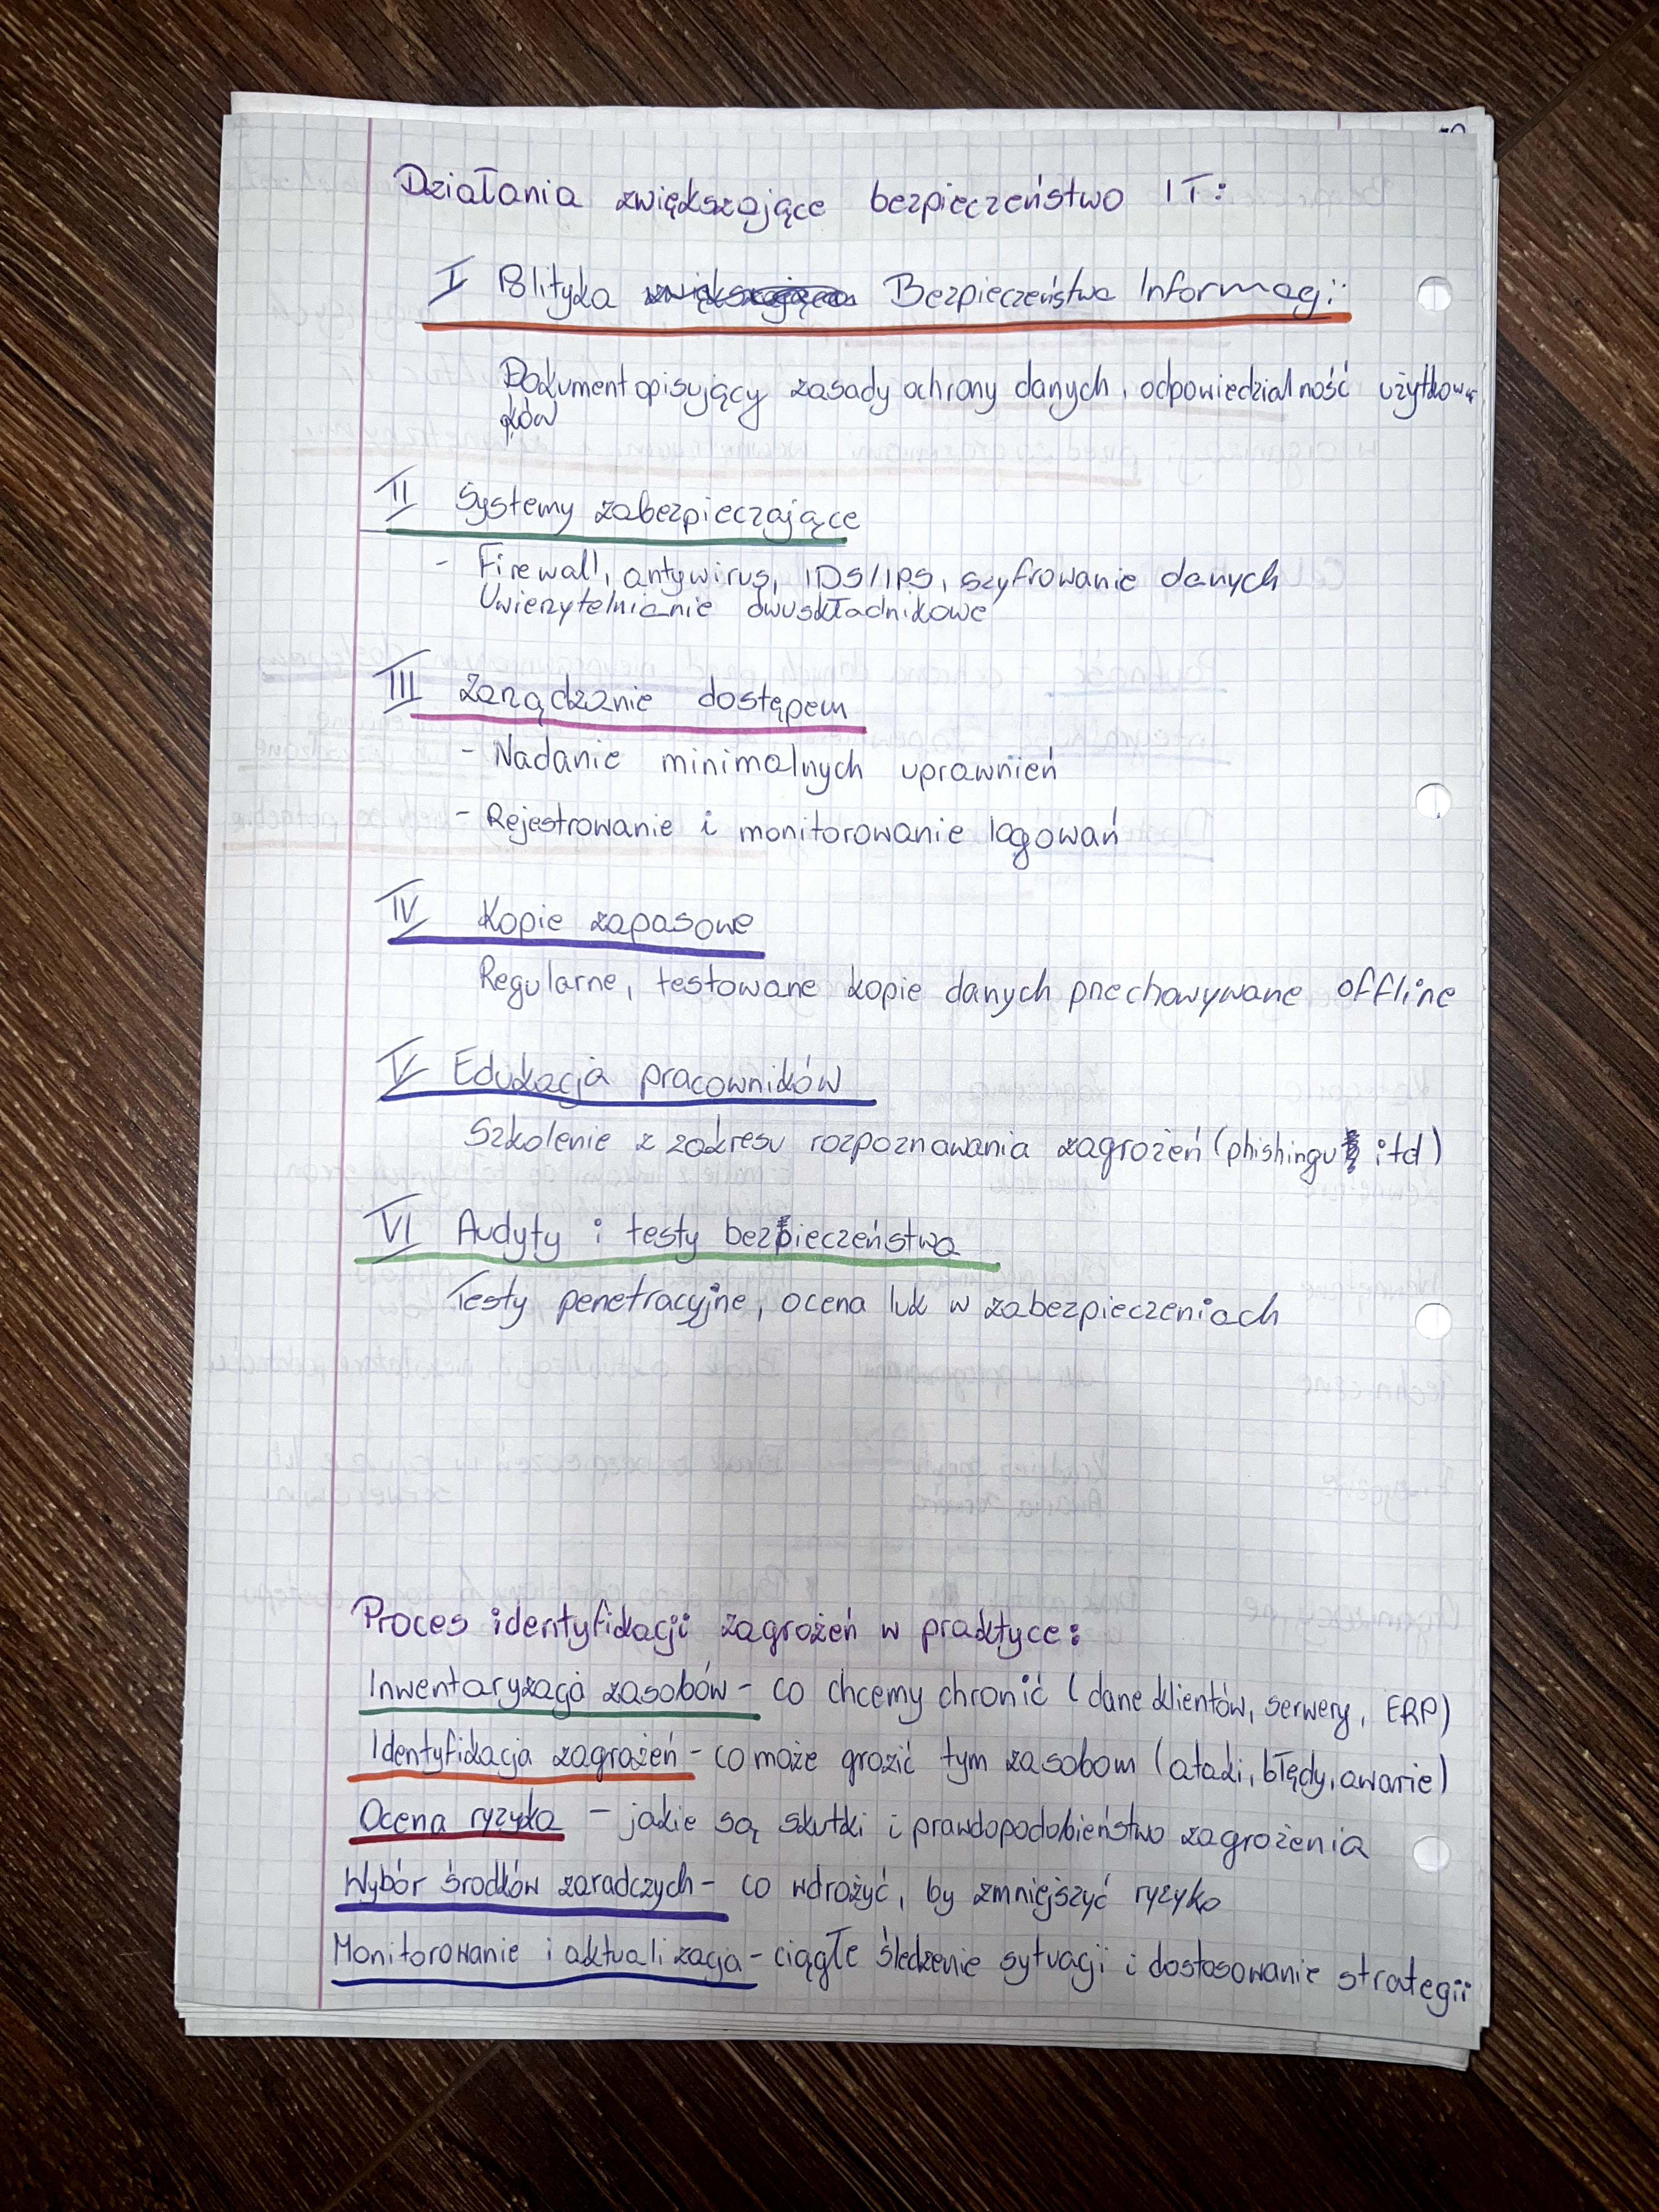 Działania zwiększające bezpieczeństwo IT:
I Polityka Bezpieczeństwa Informacji:
Dokument opisujący zasady ochrony danych, odpowiedzialność użytkowni
ków
II Systemy zabezpieczające
- Firewall, antywirus, IDS/IPS, szyfrowanie danych
Uwierzytelnianie dwuskładnikowe
III Zarządzanie dostępem
- Nadanie minimalnych uprawnień
- Rejestrowanie i monitorowanie logowań
IV Kopie zapasowe
Regularne, testowane kopie danych przechowywane offline
V Edukacja pracowników
Szkolenie z zakresu rozpoznawania zagrożeń (phishingu itd)
VI Audyty i testy bezpieczeństwa
Testy penetracyjne, ocena luk w zabezpieczeniach
Proces identyfikacji zagrożeń w praktyce:
Inwentaryzacja zasobów - co chcemy chronić (dane klientów, serwery, ERP)
Identyfikacja zagrożeń - co może grozić tym zasobom (ataki, błędy, awarie)
Ocena ryzyka - jakie są skutki i prawdopodobieństwo zagrożenia
Wybór środków zaradczych - co wdrożyć, by zmniejszyć ryzyko
Monitorowanie i aktualizacja - ciągłe śledzenie sytuacji i dostosowanie strategii